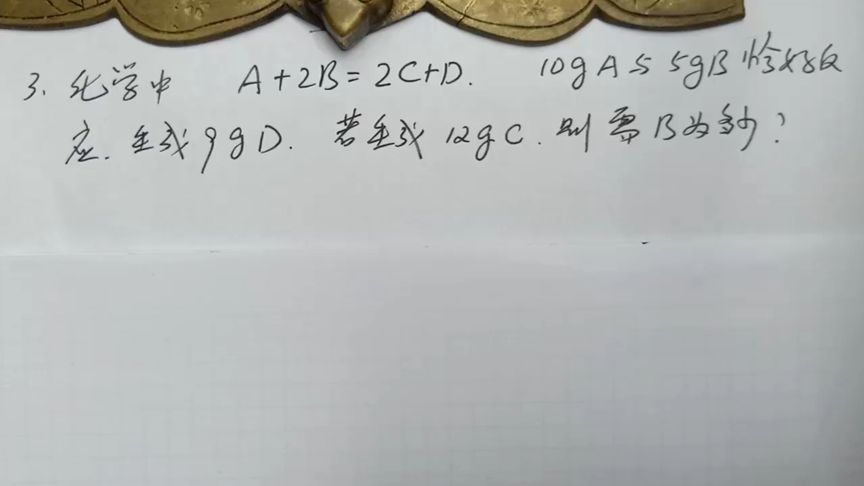 3. 化学中 A+2B=2C+D. 10gA与5gB恰好反
应.生成9gD. 若生成12gC.则需B为多少?